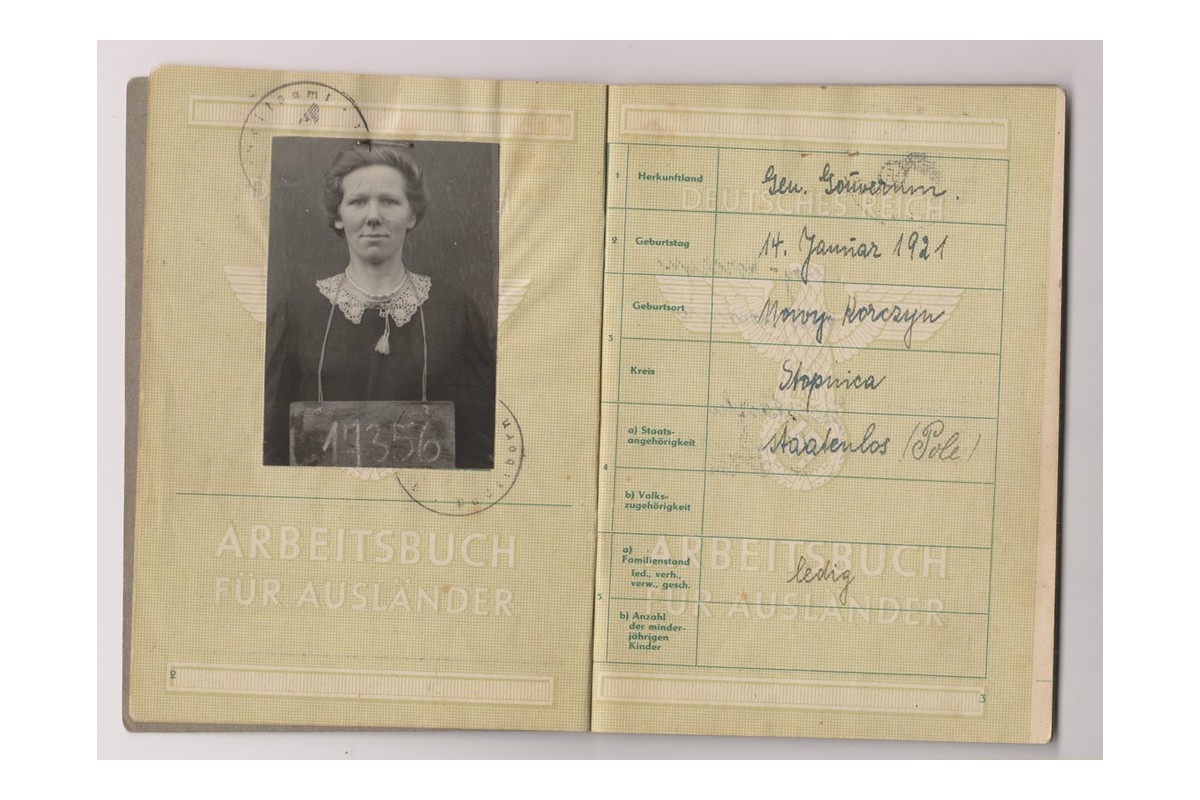 17356
ARBEITSBUCH
FÜR AUSLÄNDER
2
DEUTSCHES REICH
1 Herkunftland Gen. Gouvernm.
2 Geburtstag 14. Januar 1921
3 Geburtsort Nowy Korczyn
Kreis Stopnica
4 a) Staats-
angehörigkeit staatenlos (Pole)
b) Volks-
zugehörigkeit
ARBEITSBUCH
FÜR AUSLÄNDER
5 a)
Familienstand ledig
led., verh.,
verw., gesch.
b) Anzahl
der minder-
jährigen
Kinder
3